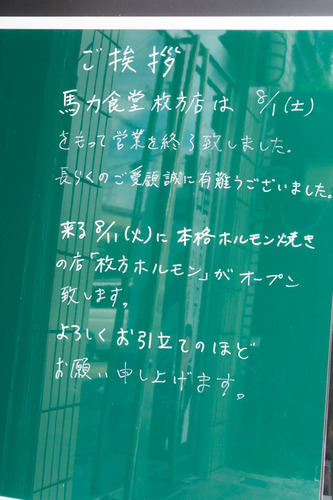 ご挨拶
馬力食堂枚方店は 8/1(土)
をもって営業を終了致しました。
長らくのご愛顧誠に有難うございました。
来る8/11(火)に本格ホルモン焼き
の店「枚方ホルモン」がオープン
致します。
よろしくお引立てのほど
お願い申し上げます。